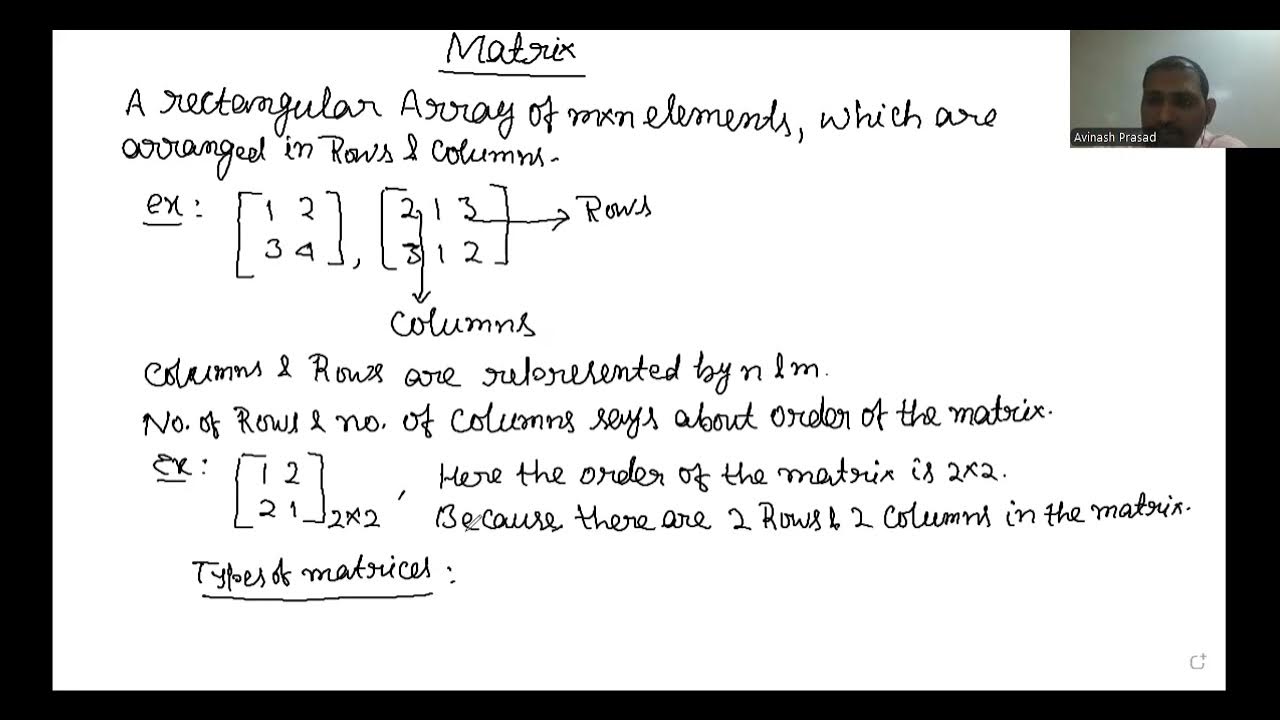 Matrix
A rectangular Array of mxn elements, which are
arranged in Rows & columns.
ex: [1 2 2 1 3 → Rows
3 4], [3 1 2]
Columns
Columns & Rows are represented by n & m.
No. of Rows & no. of columns says about order of the matrix.
Ex: [1 2 , Here the order of the matrix is 2x2.
2 1]2x2 Because there are 2 Rows & 2 columns in the matrix.
Types of matrices:
Avinash Prasad